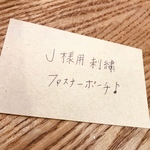 J様用刺繍
ファスナーポーチ♪